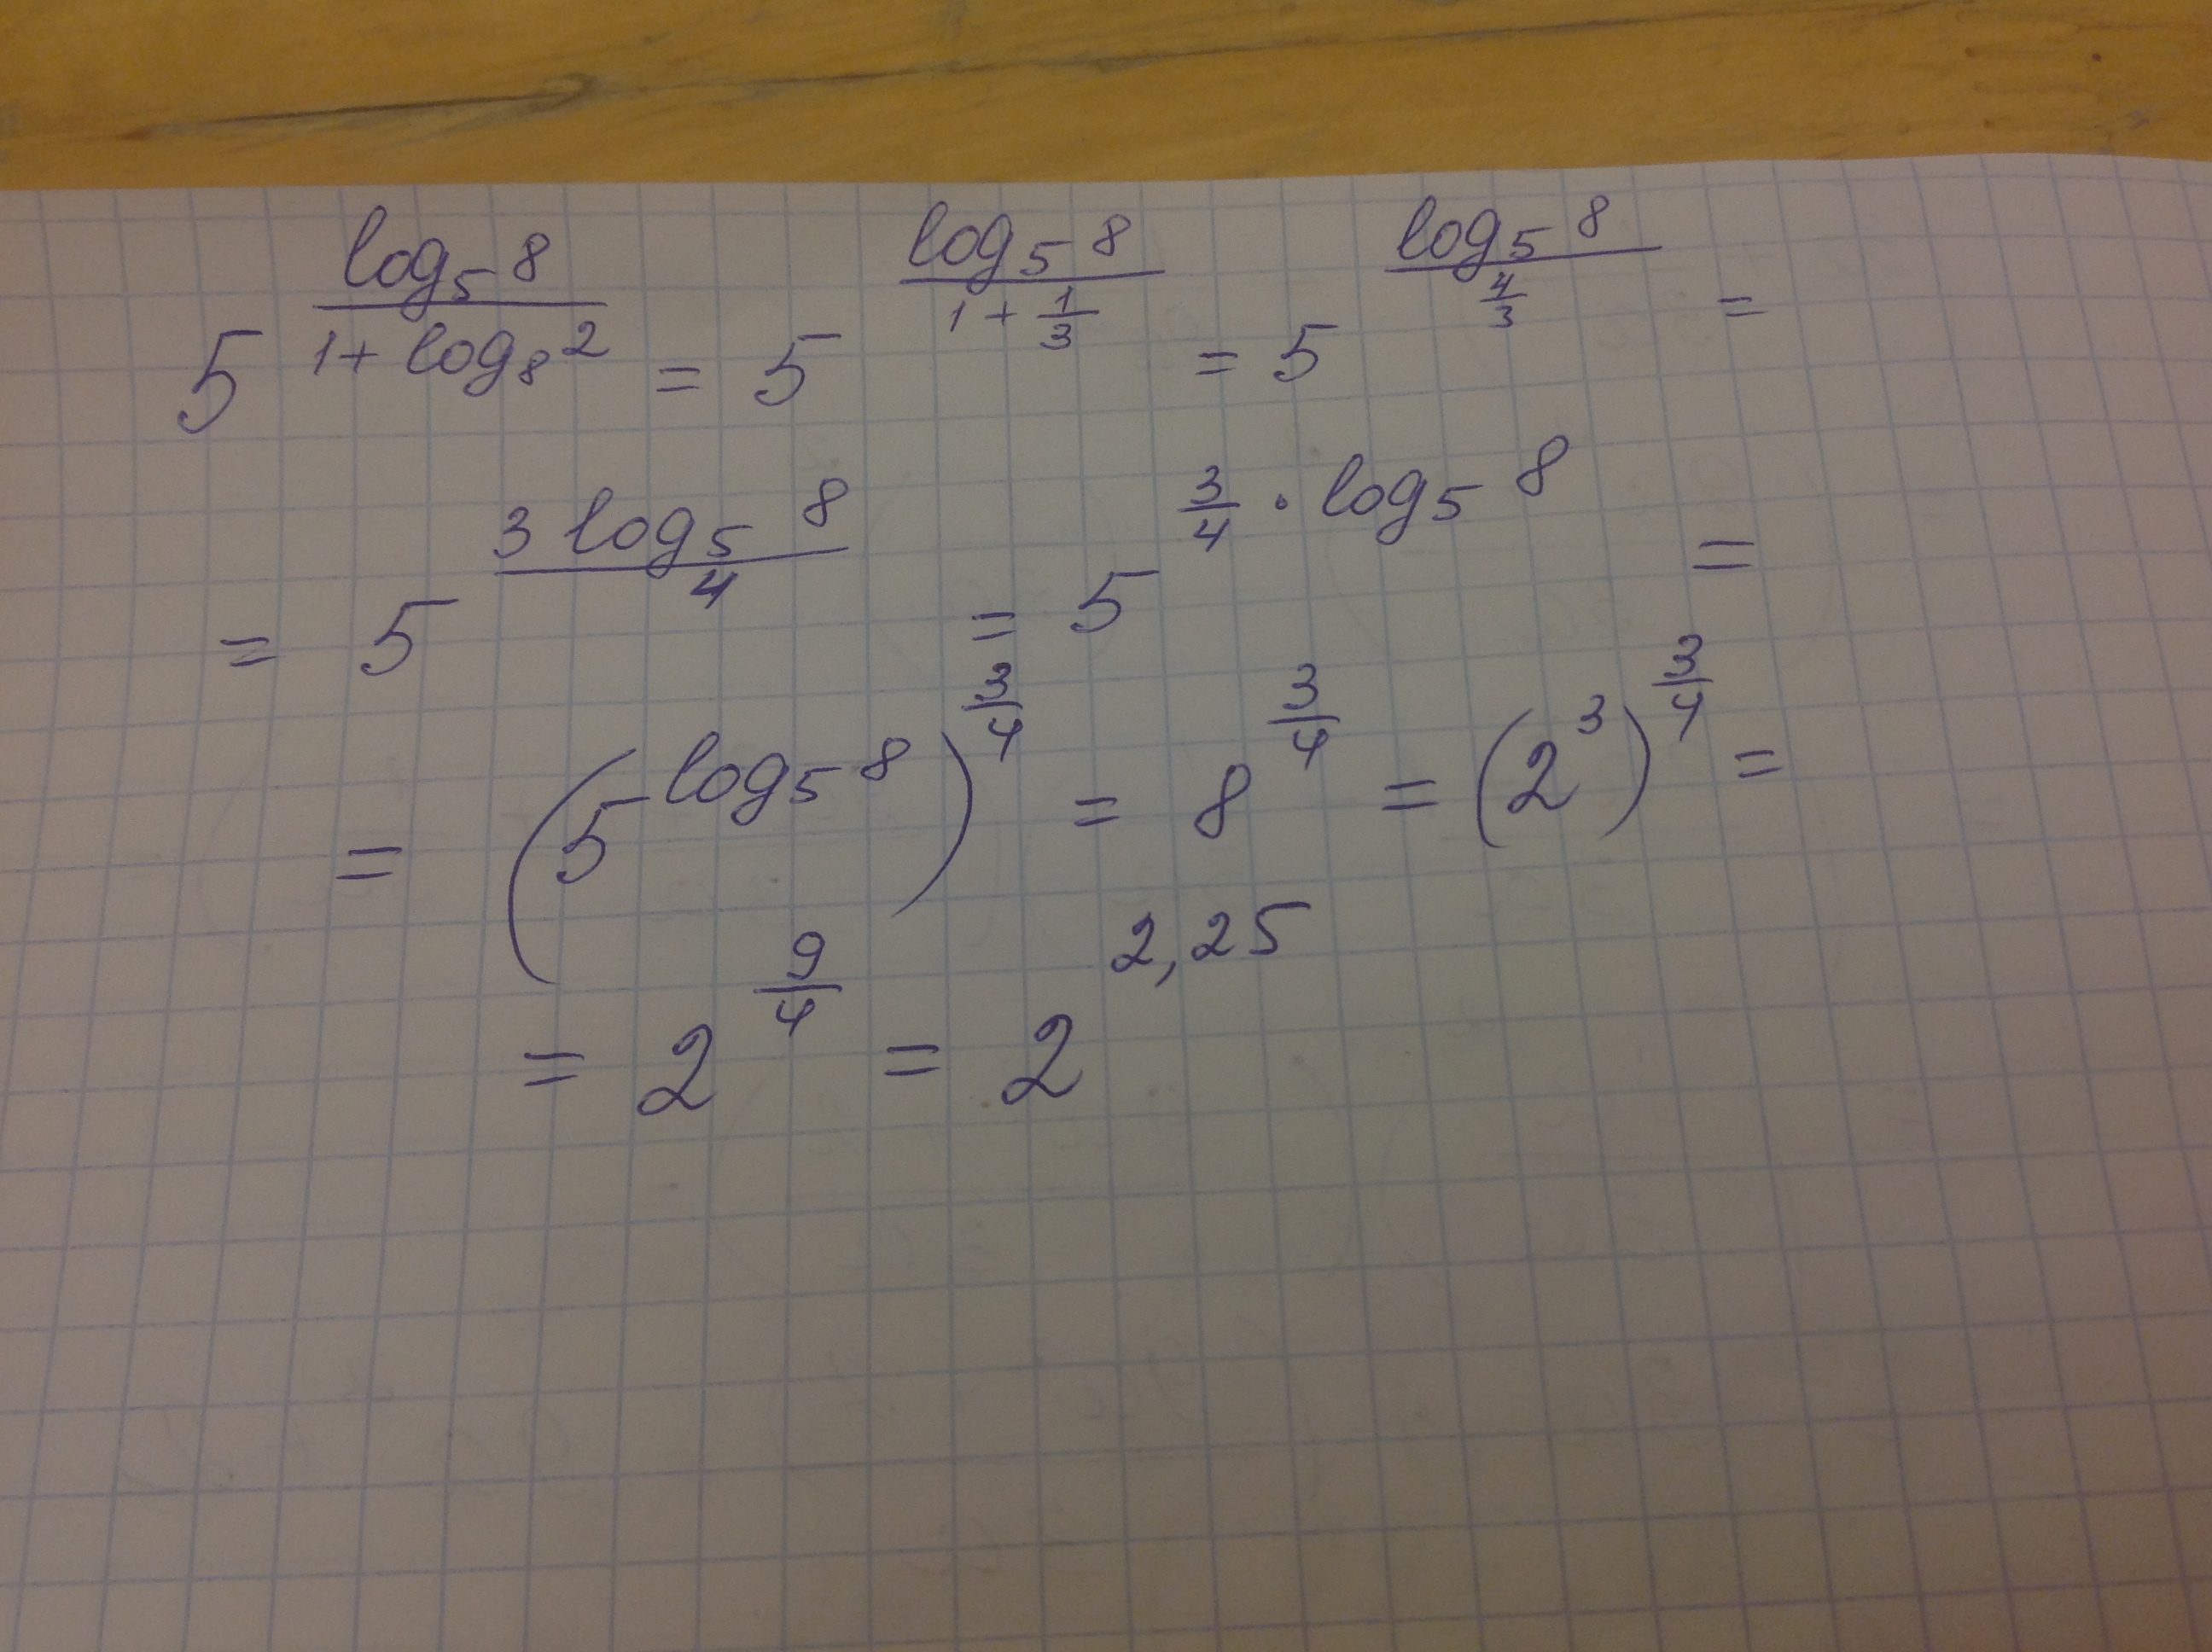 5^(log₅8 / (1 + log₈2)) = 5^(log₅8 / (1 + 1/3)) = 5^(log₅8 / (4/3)) =
= 5^(3 log₅8 / 4) = 5^(3/4 · log₅8) =
= (5^(log₅8))^(3/4) = 8^(3/4) = (2³)^(3/4) =
= 2^(9/4) = 2^(2,25)